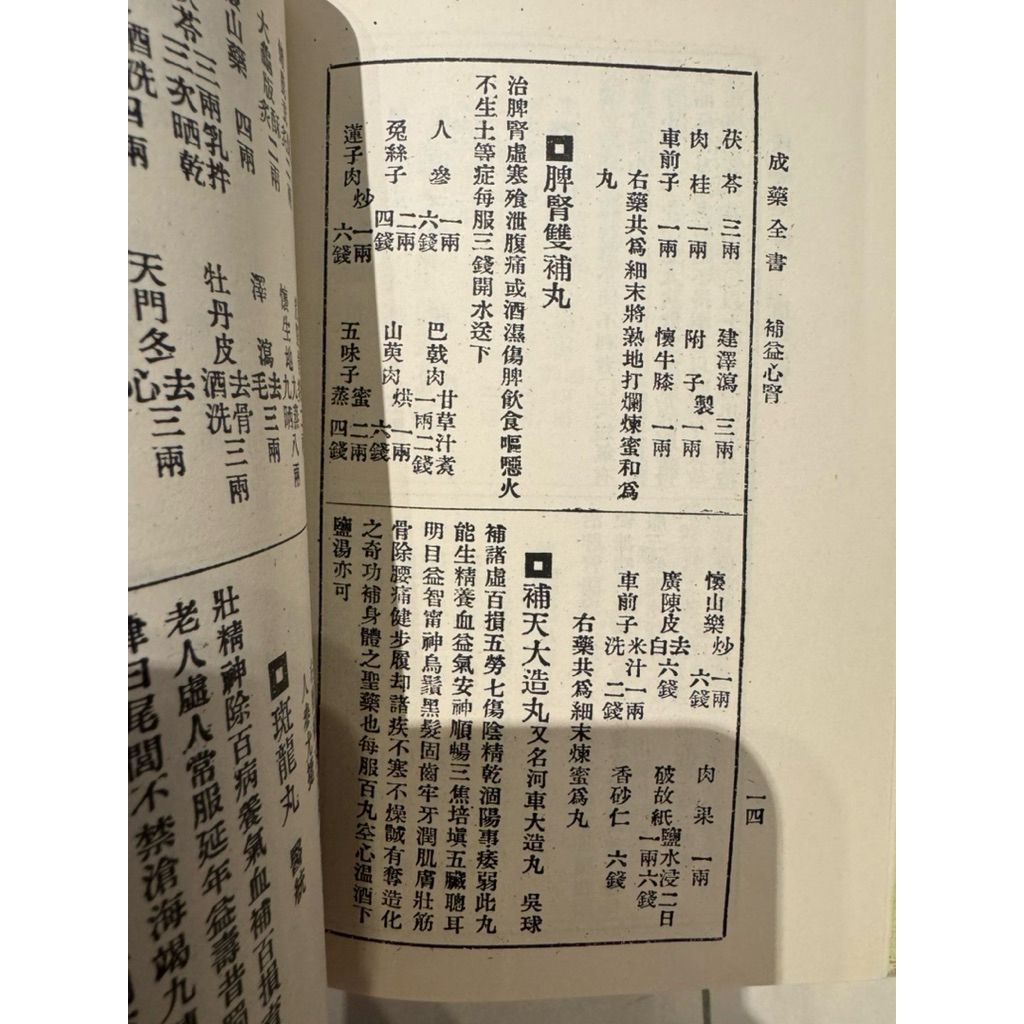 成藥全書 補益心腎 一四
茯苓 三兩 建澤瀉 三兩
肉桂 一兩 附子 製 一兩
車前子 一兩 懷牛膝 一兩
右藥共爲細末將熟地打爛煉蜜和爲
丸
脾腎雙補丸
治脾腎虛寒飧泄腹痛或酒濕傷脾飲食嘔噁火
不生土等症每服三錢開水送下
人參 一兩六錢 巴戟肉 甘草汁煑 一兩二錢
兔絲子 二兩四錢 山萸肉 烘 一兩六錢
蓮子肉 炒 一兩六錢 五味子 蜜蒸 二兩四錢
懷山藥 炒 一兩六錢 肉果 一兩
廣陳皮 去白 六錢 破故紙 鹽水浸二日 一兩六錢
車前子 米汁洗 一兩二錢 香砂仁 六錢
右藥共爲細末煉蜜爲丸
補天大造丸 又名河車大造丸 吳球
補諸虛百損五勞七傷陰精乾涸陽事痿弱此丸
能生精養血益氣安神順暢三焦培塡五臟聰耳
明目益智甯神烏鬚黑髮固齒牢牙潤肌膚壯筋
骨除腰痛健步履却諸疾不寒不燥誠有奪造化
之奇功補身體之聖藥也每服百丸空心溫酒下
鹽湯亦可
山藥 四兩
茯苓 三兩乳拌三次晒乾
酒洗四兩
澤瀉 去毛 三兩
牡丹皮 去骨酒洗 三兩
天門冬 去心 三兩
斑龍丸
壯精神除百病養氣血補百損
老人虛人常服延年益壽昔蜀
尾閭不禁滄海竭九